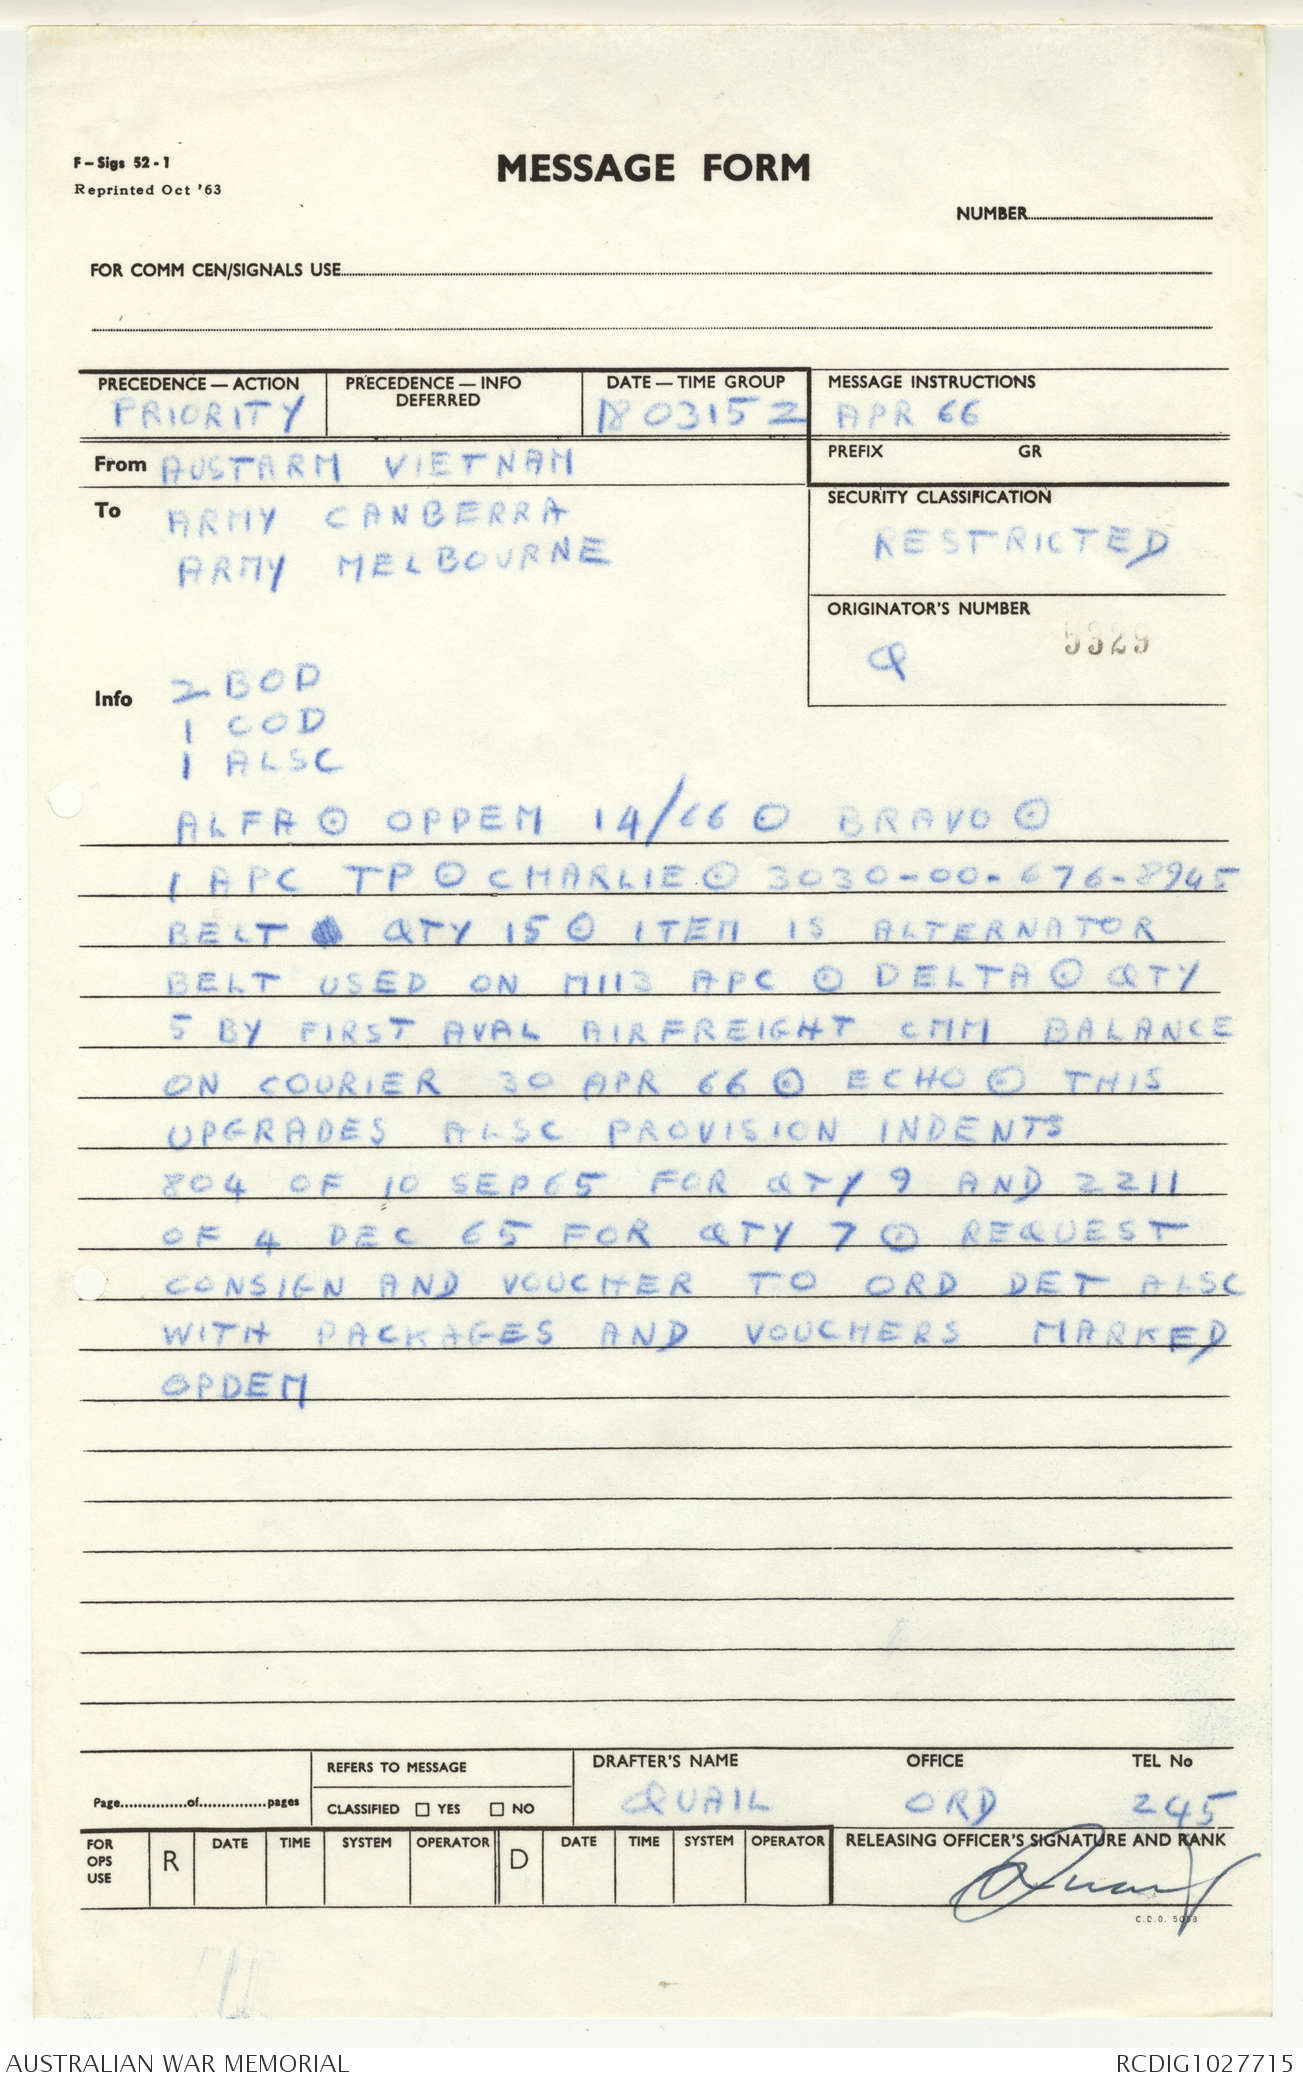 F-Sigs 52-1
Reprinted Oct '63
MESSAGE FORM
NUMBER
FOR COMM CEN/SIGNALS USE
PRECEDENCE — ACTION
PRIORITY
PRECEDENCE — INFO
DEFERRED
DATE — TIME GROUP
180315Z
MESSAGE INSTRUCTIONS
APR 66
From AUSTARM VIETNAM
PREFIX GR
To ARMY CANBERRA
ARMY MELBOURNE
SECURITY CLASSIFICATION
RESTRICTED
ORIGINATOR'S NUMBER
Q 5329
Info 2 BOD
1 COD
1 ALSC
ALFA ⊙ OPDEM 14/66 ⊙ BRAVO ⊙
1 APC TP ⊙ CHARLIE ⊙ 3030-00-676-8945
BELT QTY 15 ⊙ ITEM IS ALTERNATOR
BELT USED ON M113 APC ⊙ DELTA ⊙ QTY
5 BY FIRST AVAL AIRFREIGHT CMM BALANCE
ON COURIER 30 APR 66 ⊙ ECHO ⊙ THIS
UPGRADES ALSC PROVISION INDENTS
804 OF 10 SEP 65 FOR QTY 9 AND 2211
OF 4 DEC 65 FOR QTY 7 ⊙ REQUEST
CONSIGN AND VOUCHER TO ORD DET ALSC
WITH PACKAGES AND VOUCHERS MARKED
OPDEM
Page of pages
REFERS TO MESSAGE
CLASSIFIED ☐ YES ☐ NO
DRAFTER'S NAME OFFICE TEL No
QUAIL ORD 245
FOR OPS USE
R DATE TIME SYSTEM OPERATOR D DATE TIME SYSTEM OPERATOR
RELEASING OFFICER'S SIGNATURE AND RANK
AUSTRALIAN WAR MEMORIAL
RCDIG1027715